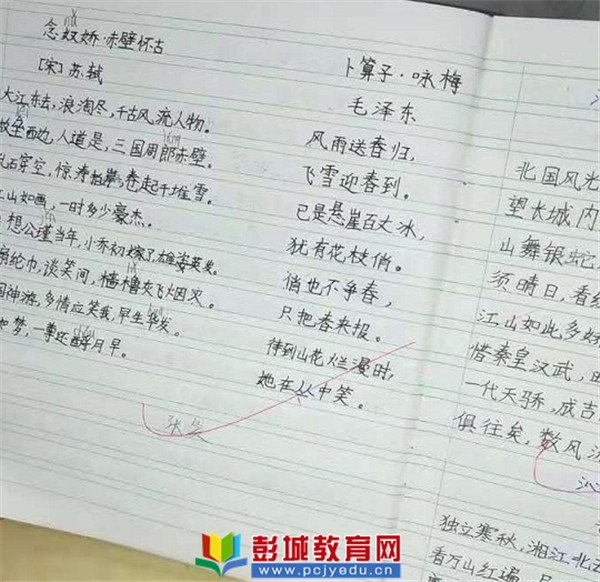 念奴娇·赤壁怀古
[宋]苏轼
大江东去,浪淘尽,千古风流人物。
故垒西边,人道是,三国周郎赤壁。
乱石穿空,惊涛拍岸,卷起千堆雪。
江山如画,一时多少豪杰。
想公瑾当年,小乔初嫁了,雄姿英发。
扇纶巾,谈笑间,樯橹灰飞烟灭。
国神游,多情应笑我,早生华发。
如梦,一尊还酹月早。
卜算子·咏梅
毛泽东
风雨送春归,
飞雪迎春到。
已是悬崖百丈冰,
犹有花枝俏。
俏也不争春,
只把春来报。
待到山花烂漫时,
她在丛中笑。
北国风光
望长城内
山舞银蛇,
须晴日,看
江山如此多
惜秦皇汉武,
一代天骄,成吉
俱往矣,数风流
沁
独立寒秋,湘江北去
看万山红遍
彭城教育网
www.pcjyedu.cn